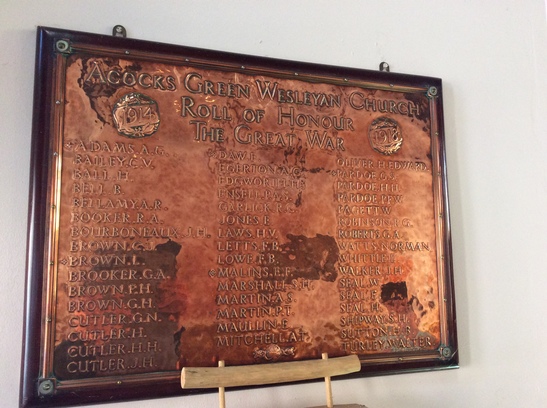 Acocks Green Wesleyan Church
Roll of Honour
The Great War
1914
ADAMS. A.G.
BAILEY. C.V.
BALL. H.
BELL. B.
BELLAMY. A.R.
BOOKER. R.A.
BOURBONEAUX. J.H.
BROWN. C.J.
BROWN. L.
BROOKER. G.A.
BROWN. P.H.
BROWN. G.H.
CUTLER. G.N.
CUTLER. H.
CUTLER. H.H.
CUTLER. J.H.
DAW. F.
EGERTON. A.C.
JONES. E.
LAWS. H.V.
LETTS. F.B.
LOWE. F.B.
MALINS. E.F.
MARSHALL. S.H.
MARTIN. A.S.
MARTIN. P.T.
MAULLIN. E.
MITCHELL. A.J.
OLIVER. H. EDWARD.
PARDOE. G.F.
ROBERTS. G.A.
WATTS. NORMAN
WALKER. J.H.
SEAL. W.
SEAL. F.
SEAL. H.
SHIPWAY. S.H.
TURLEY. WALTER